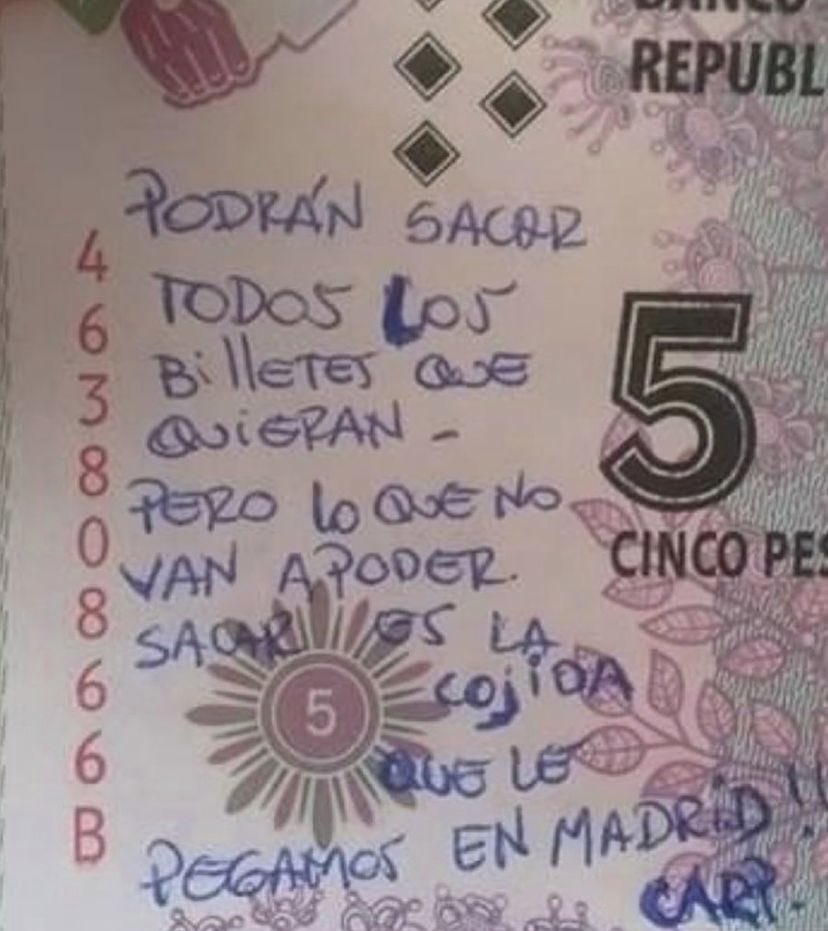 BANCO
REPUBL
PODRÁN SACAR
TODOS LOS
BillETES QUE
QUiERAN -
PERO lO QUE NO
VAN A PODER.
SACAR ES LA
COjiDA
QUE LE
PEGAMOS EN MADRiD!!
CARP.
46380866B
5
CINCO PES
5